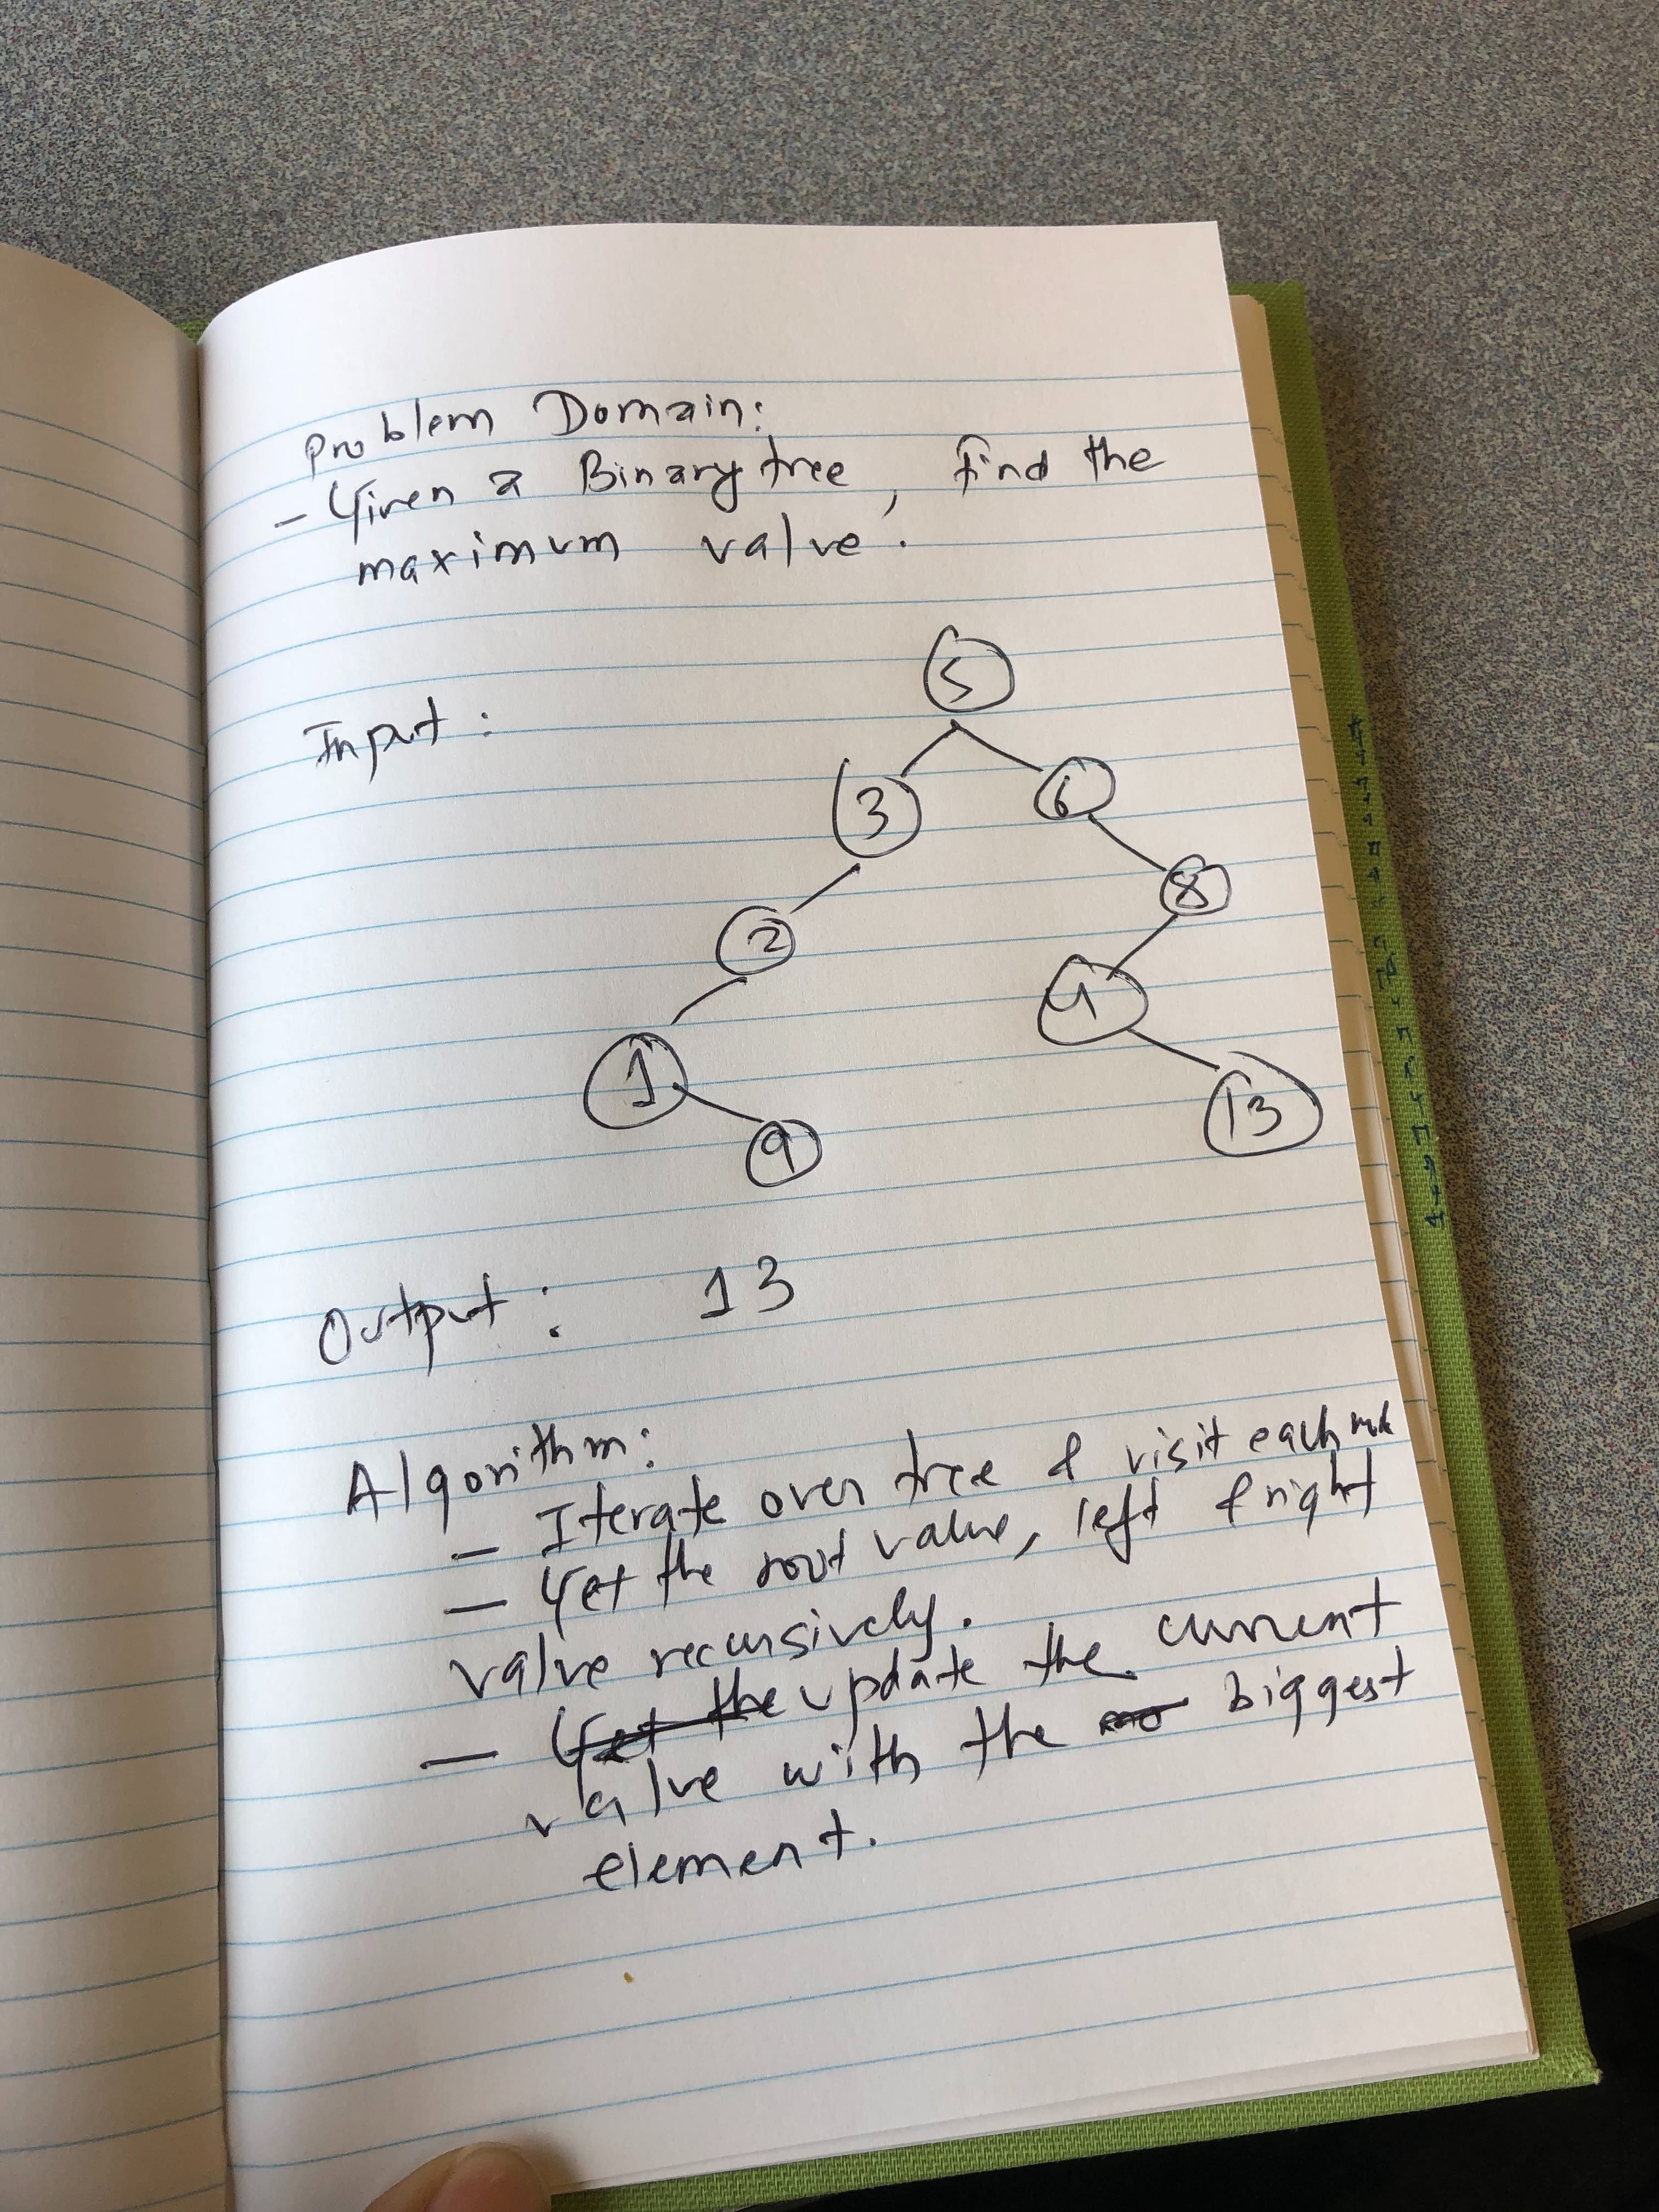 Problem Domain:
- Given a Binary tree, find the
maximum value.
Input:
5
3 6
8
2
4
1
13
9
Output: 13
Algorithm:
- Iterate over tree & visit each node
- Get the root value, left & right
value recursively.
- Get the update the current
value with the biggest
element.